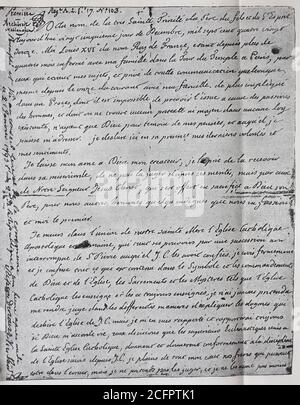 Au nom de la très Sainte Trinité du Père du fils et du St Esprit
aujourd'hui vingt cinquième jour de Décembre, mil sept cent quatre vingt
douze. Moi Louis XVI du nom Roy de France, étant depuis plus de
quatre mois enfermé avec ma famille dans la Tour du Temple à Paris, par
ceux qui étaient mes sujets, et privé de toute communication quelconque,
même depuis le onze du courant avec ma famille, de plus impliqué
dans un Procès, dont il est impossible de prévoir l'issue à cause des passions
des hommes, et dont on ne trouve aucun prétexte ni moyen dans aucune loy
existante, n'ayant que Dieu pour témoin de mes pensées, et auquel je
puisse m'adresser. je déclare ici en sa présence mes dernières volontés et
mes sentiments.
Je laisse mon ame à Dieu mon créateur, je le prie de la recevoir
dans sa miséricorde, de ne pas la juger d'après ses mérites, mais par ceux
de Notre Seigneur Jésus Christ, qui s'est offert en sacrifice à Dieu son
Père, pour nous autres hommes quelqu'indignes que nous en fussions
et moi le premier.
Je meurs dans l'union de notre Sainte Mère l'Eglise Catholique
Apostolique et Romaine, qui tient ses pouvoirs par une succession non
interrompue de St Pierre auquel J.C. les avait confiés, je crois fermement
et je confesse tout ce qui est contenu dans le Symbole et les commandements
de Dieu et de l'Eglise, les Sacrements et les Mystères tels que l'Eglise
Catholique les enseigne et les a toujours enseignés, je n'ai jamais prétendu
me rendre juge dans les différentes manières d'expliquer les dogmes qui
déchire l'Eglise de J.C. mais je m'en suis rapporté et rapporterai toujours
si Dieu m'accorde vie, aux décisions que les supérieurs Ecclésiastiques unis à
la Sainte Eglise Catholique, donnent et donneront conformément à la discipline
de l'Eglise suivie depuis J.C. je plains de tout mon coeur nos frères qui peuvent
être dans l'erreur, mais je ne prétends pas les juger, et je ne les aime pas moins
alamy
Image ID: 2CFPTK1
www.alamy.com